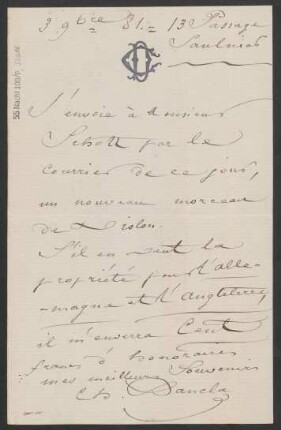 3 9bre 81. = 13 Passage
Saulnier
J'envoie à Monsieur
Schott par le
courrier de ce jour,
un nouveau morceau
de Violon.
S'il en veut la
propriété pour l'alle-
magne et l'angleterre,
il m'enverra Cent
francs d'honoraires
mes meilleurs Souvenirs
Ch. Dancla
55 Nachl 100/A